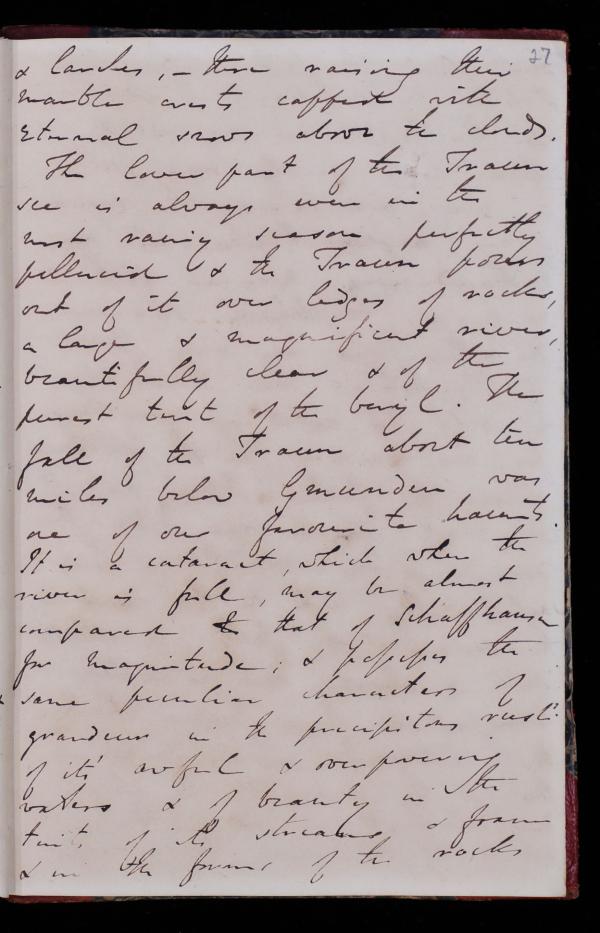 27
& larches, – there raising their
marble crests capped with
eternal snows above the clouds.
The lower part of the Traun
see is always even in the
most rainy season perfectly
pellucid & the Traun pours
out of it over ledges of rocks,
a large & magnificent river,
beautifully clear & of the
purest tint of the beryl. The
fall of the Traun about ten
miles below Gmunden was
one of our favourite haunts.
It is a cataract, which when the
river is full, may be almost
compared to that of Schaffhausen
for magnitude; & possesses the
same peculiar characters of
grandeur in the precipitous rush
of it's awful & overpowering
waters & of beauty in the
tints of its streams & foam
& in the forms of the rocks